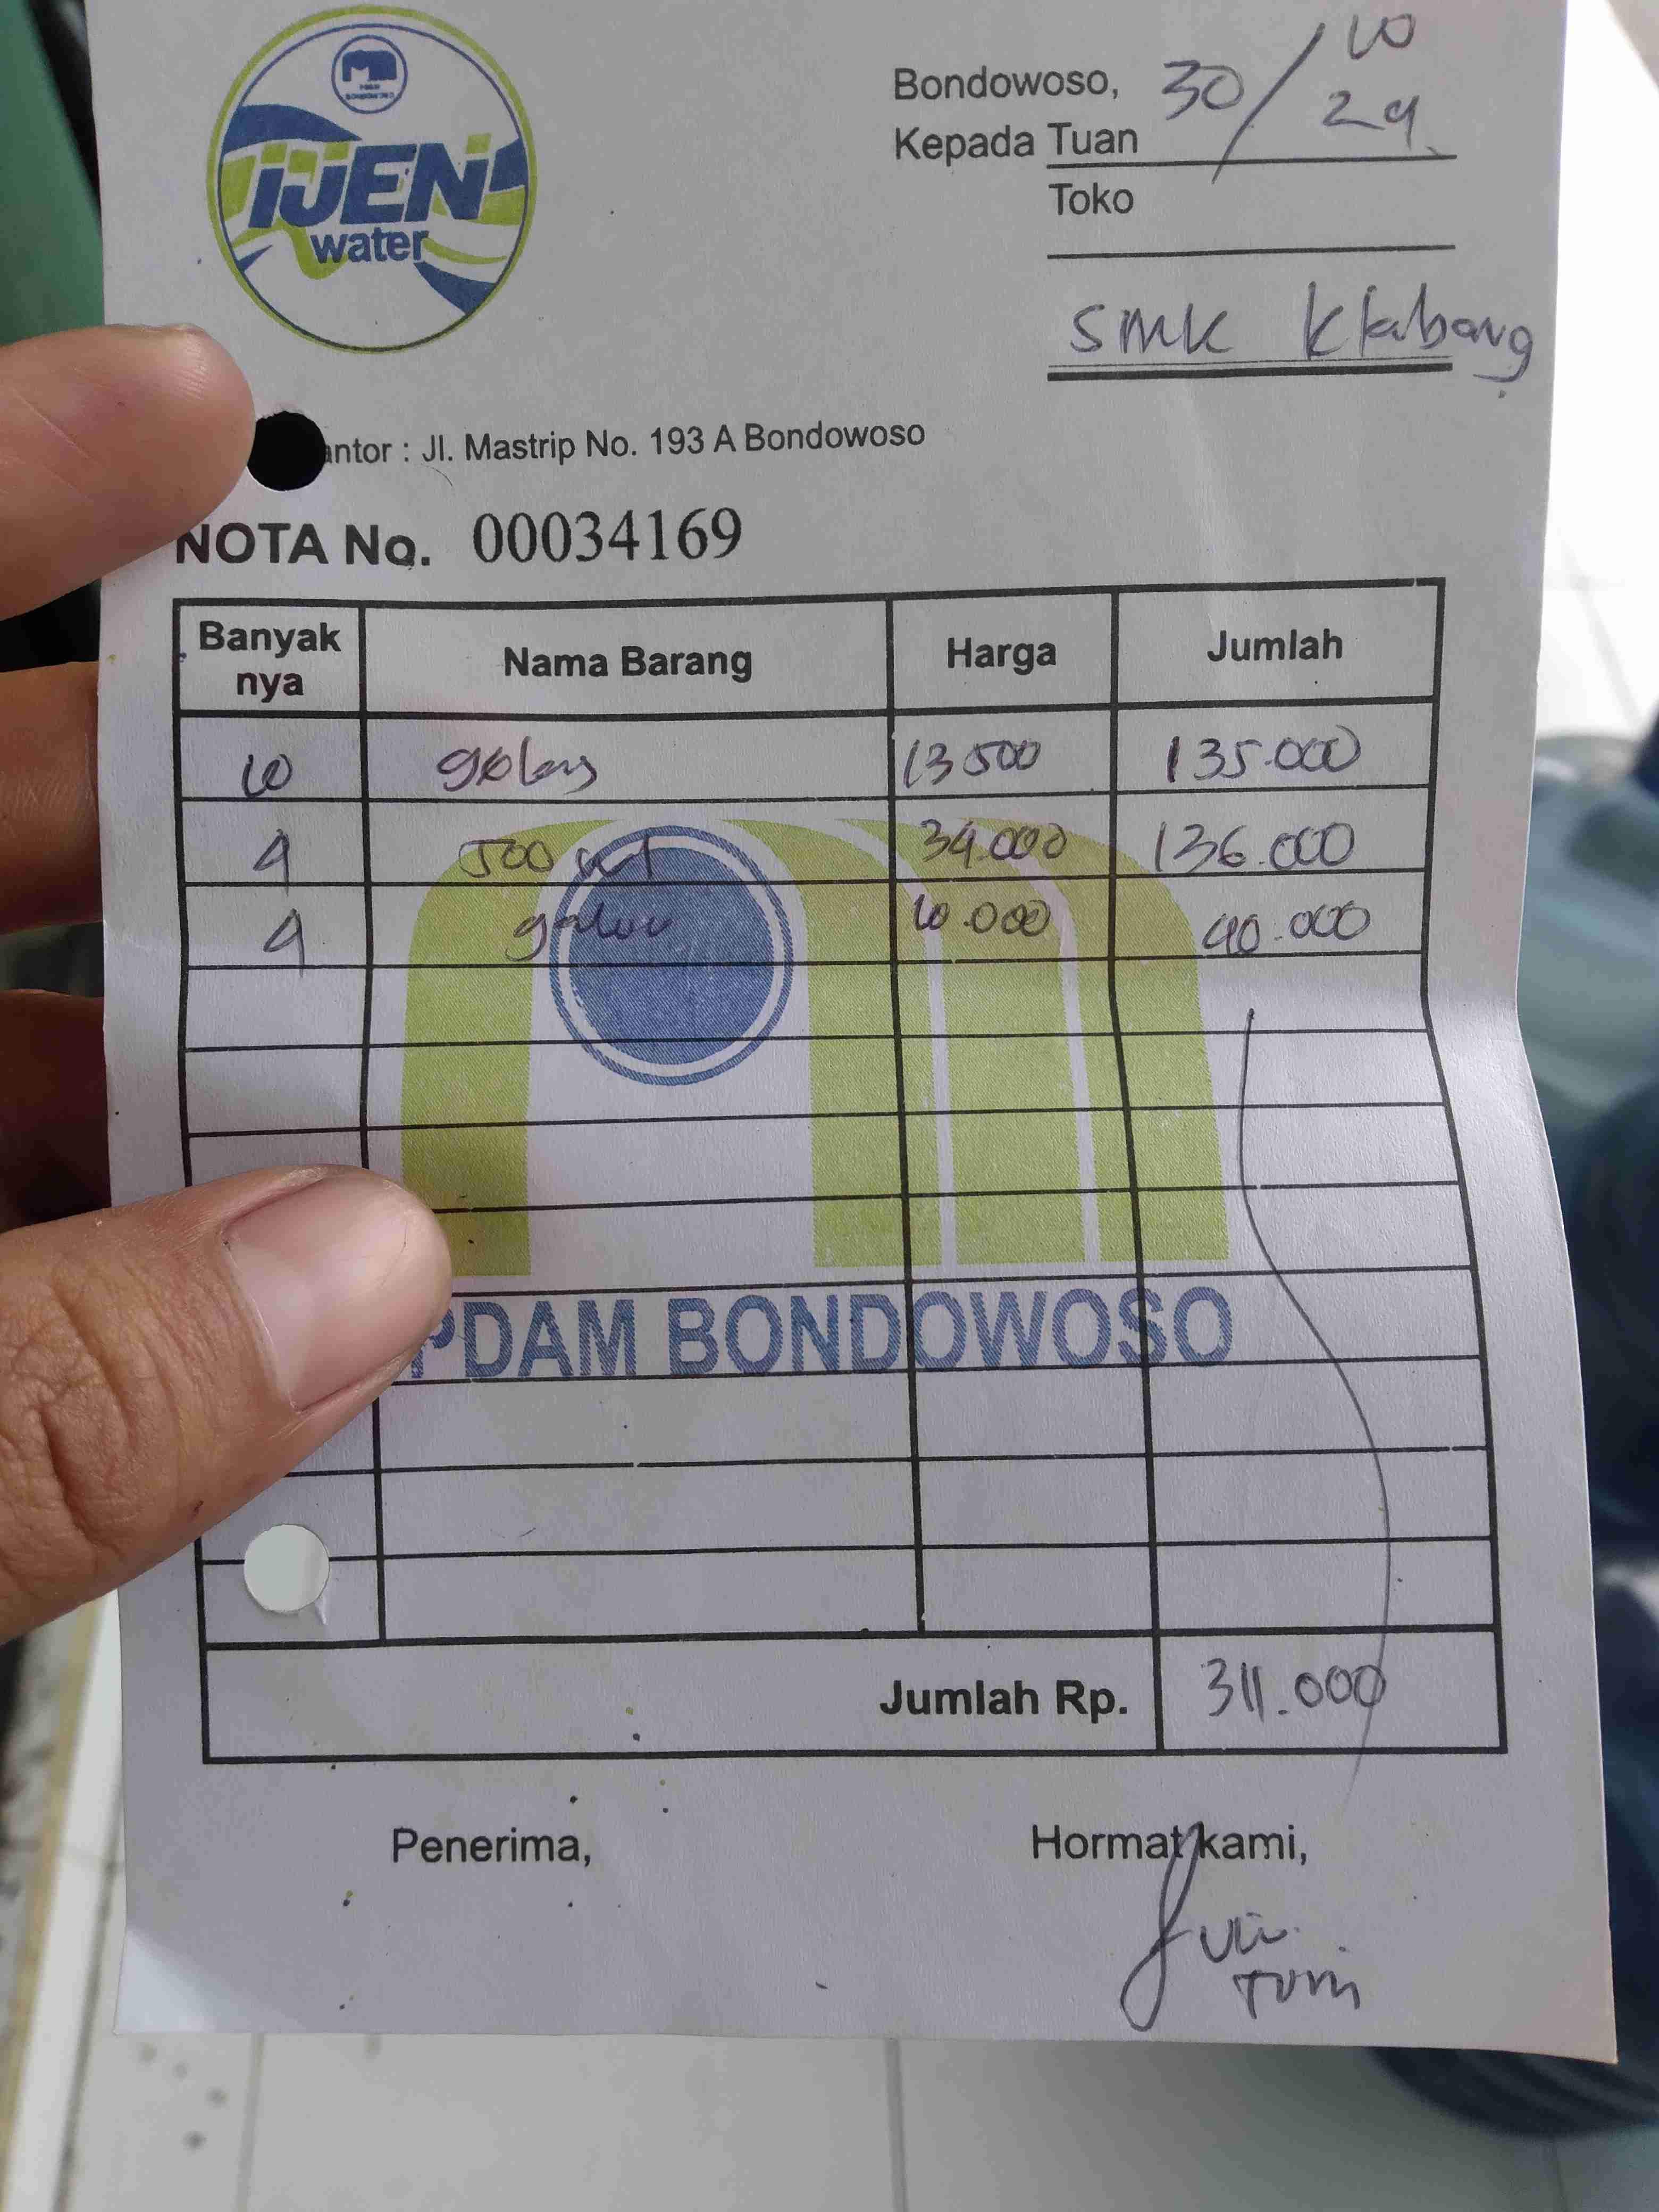 IJEN
water
Bondowoso, 30/10
24
Kepada Tuan
Toko
SMK Klabang
antor : Jl. Mastrip No. 193 A Bondowoso
NOTA No. 00034169
Banyak nya Nama Barang Harga Jumlah
10 gelas 13 500 135.000
4 500 ml 34.000 136.000
4 galon 10.000 40.000
PDAM BONDOWOSO
Jumlah Rp. 311.000
Penerima, Hormat kami,